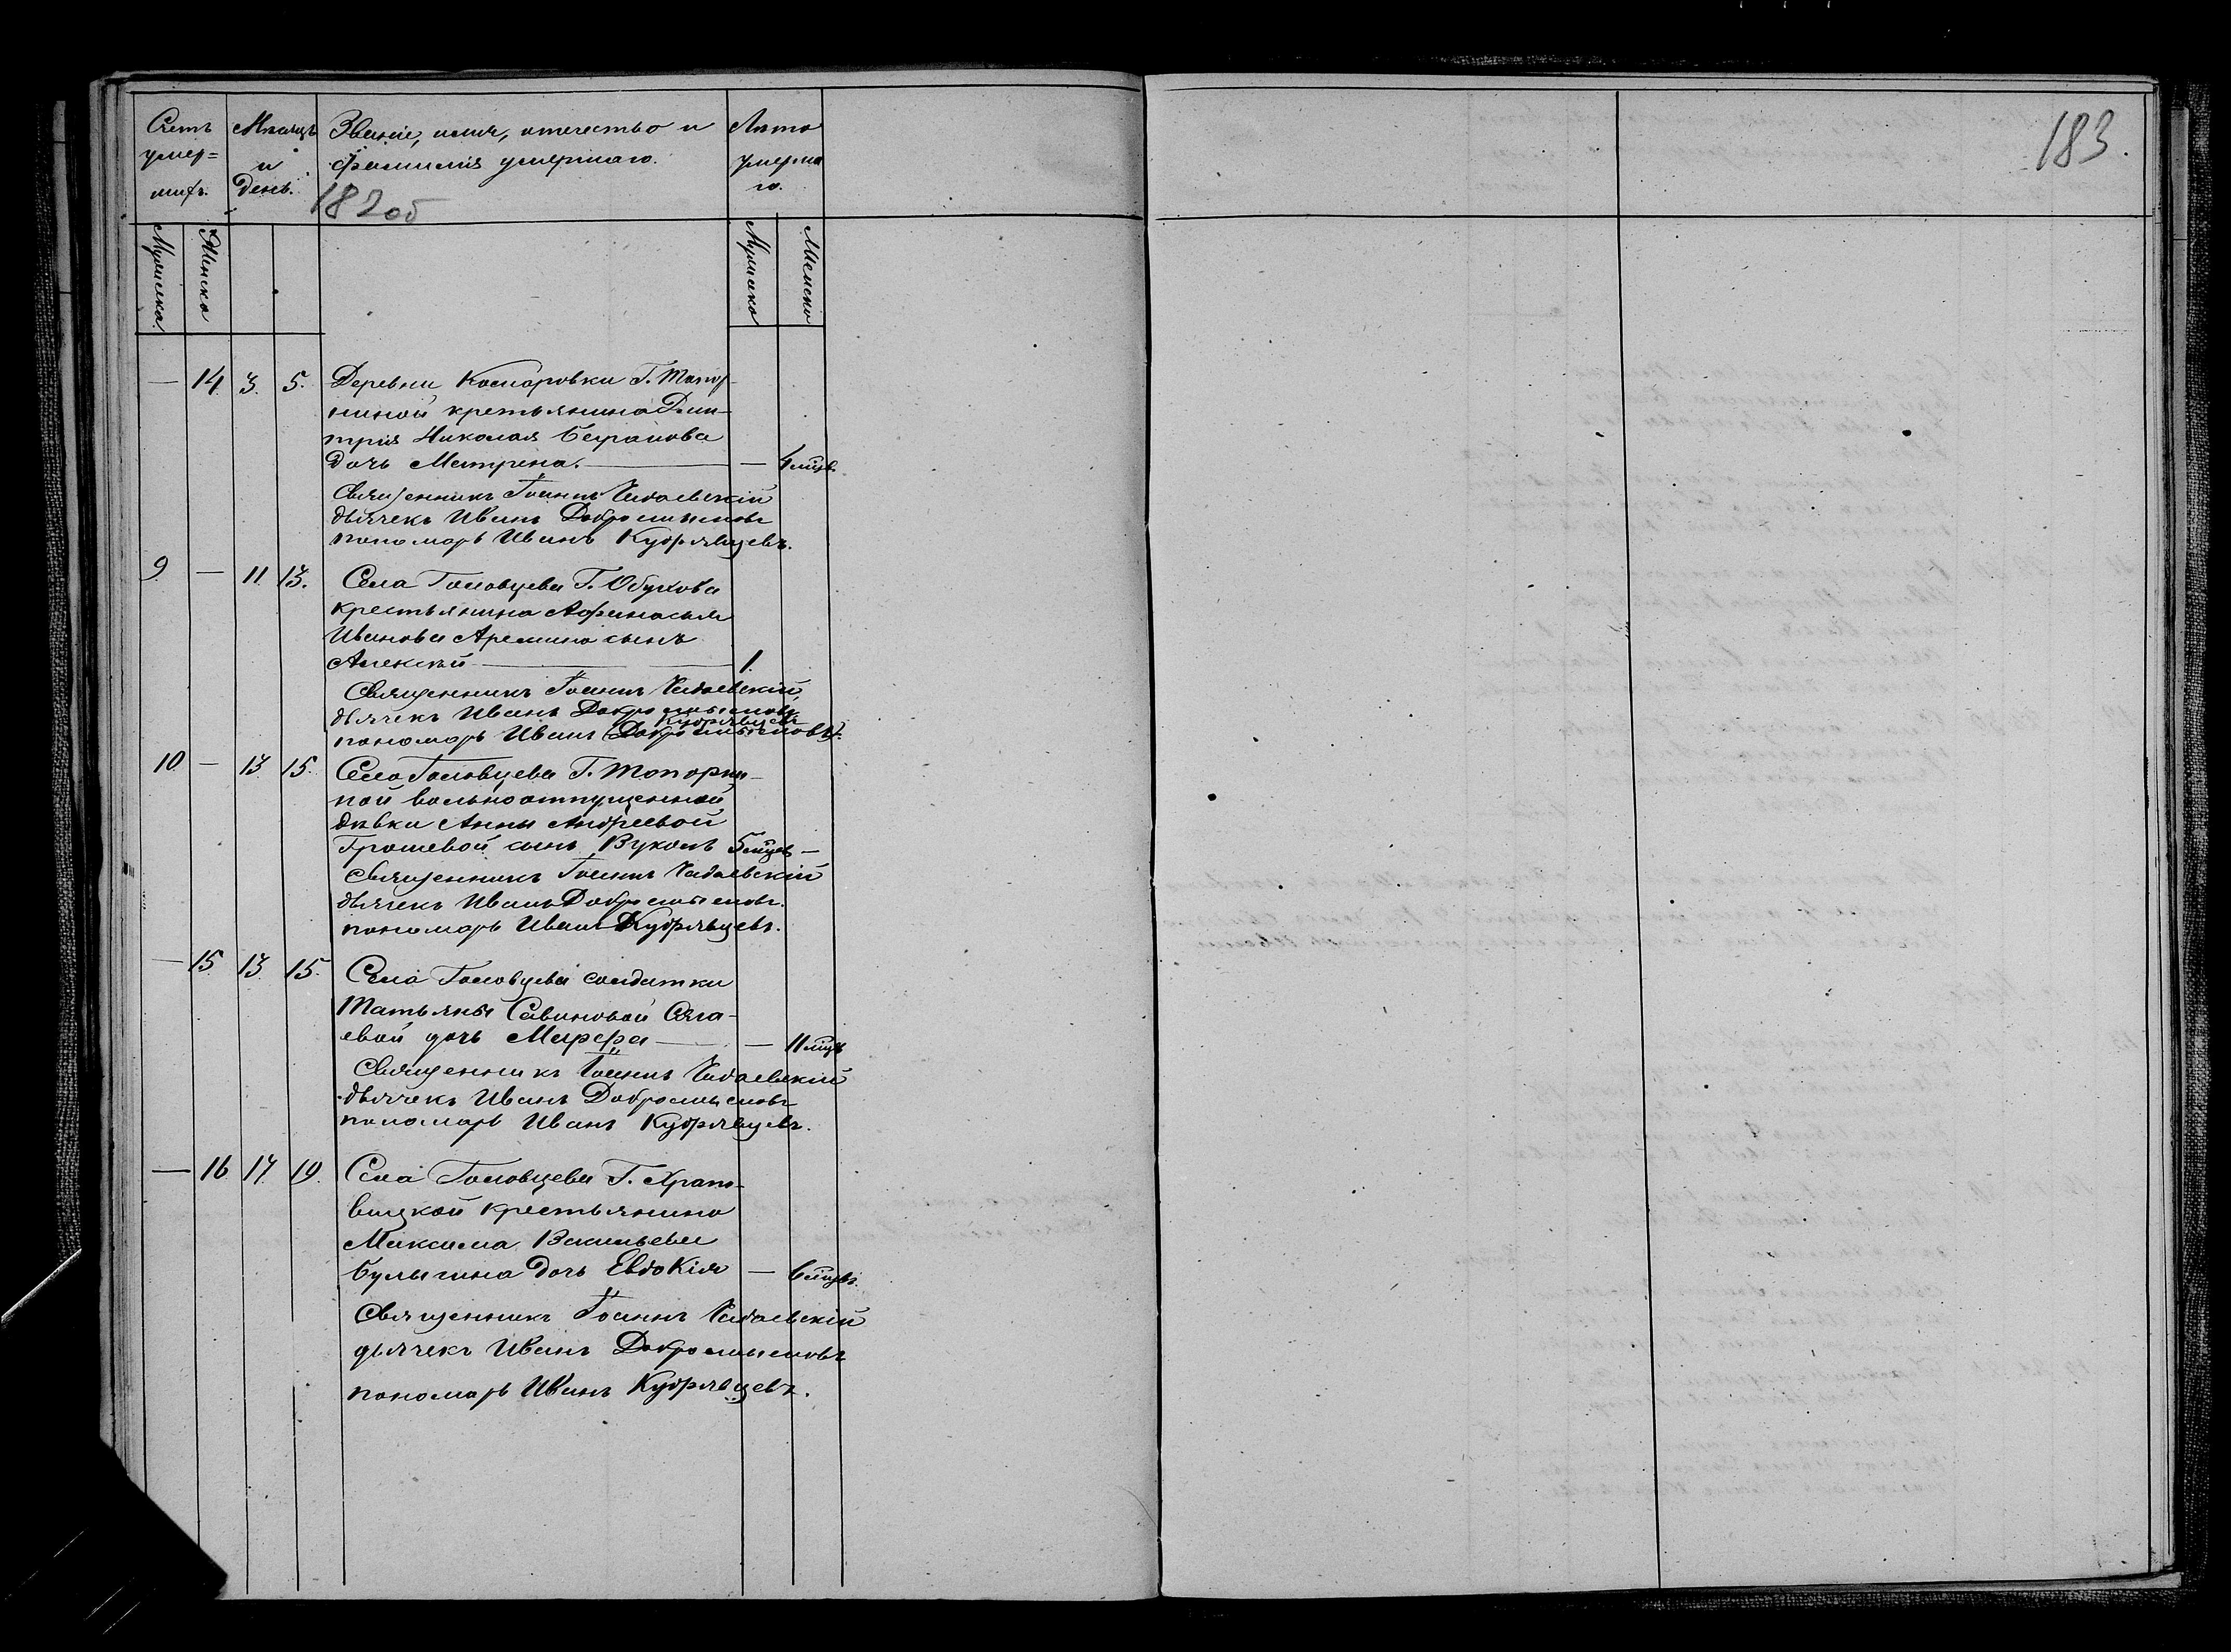 183.
Счетъ умер=шихъ.
Мѣсяцъ и день.
Званіе, имя, отчество и
фамилія умершаго.
Лѣта умершаго.
182 об
Мужеска
Женска
Мужеска
Женска
— 14 3. 5. Деревни Комаровки Г. Топор-
ниной кретьянина Дми-
трія Николая
дочь Матрена. — — 4 мцв.
Священникъ Іоаннъ
дьячекъ Иванъ Добромысловъ
пономарь Иванъ Кудрявцевъ.
9 — 11. 13. Села Головцева Г. Обухова
крестьянина Афанасья
Иванова Аремина сынъ
Алексѣй — — 1.
Священникъ Іоаннъ
дьячекъ Иванъ Добромысловъ
Кудрявцевъ
пономарь Иванъ (Добромысловъ).
10 — 13 15. Село Головцева Г. Топорни-
ной вольноотпущенной
дѣвки Анны Андреевой
Грошевой сынъ Вуколъ 5 мцев —
священникъ Іоаннъ
дьячекъ Иванъ Добромысловъ.
пономарь Иванъ Кудрявцевъ.
— 15 13 15. Села Головцева солдатки
Татьяны Савиновой
евой дочь Марфа — — 11 мцв
Священникъ Іоаннъ
дьячекъ Иванъ Добромысловъ
пономарь Иванъ Кудрявцевъ.
— 16 17. 19. Села Головцева Г. Храпо-
вицкой крестьянина
Максима Васильева
Булыгина дочь Евдокія — 6 мцвъ.
Священникъ Іоаннъ
дьячекъ Иванъ Добромысловъ
пономарь Иванъ Кудрявцевъ.